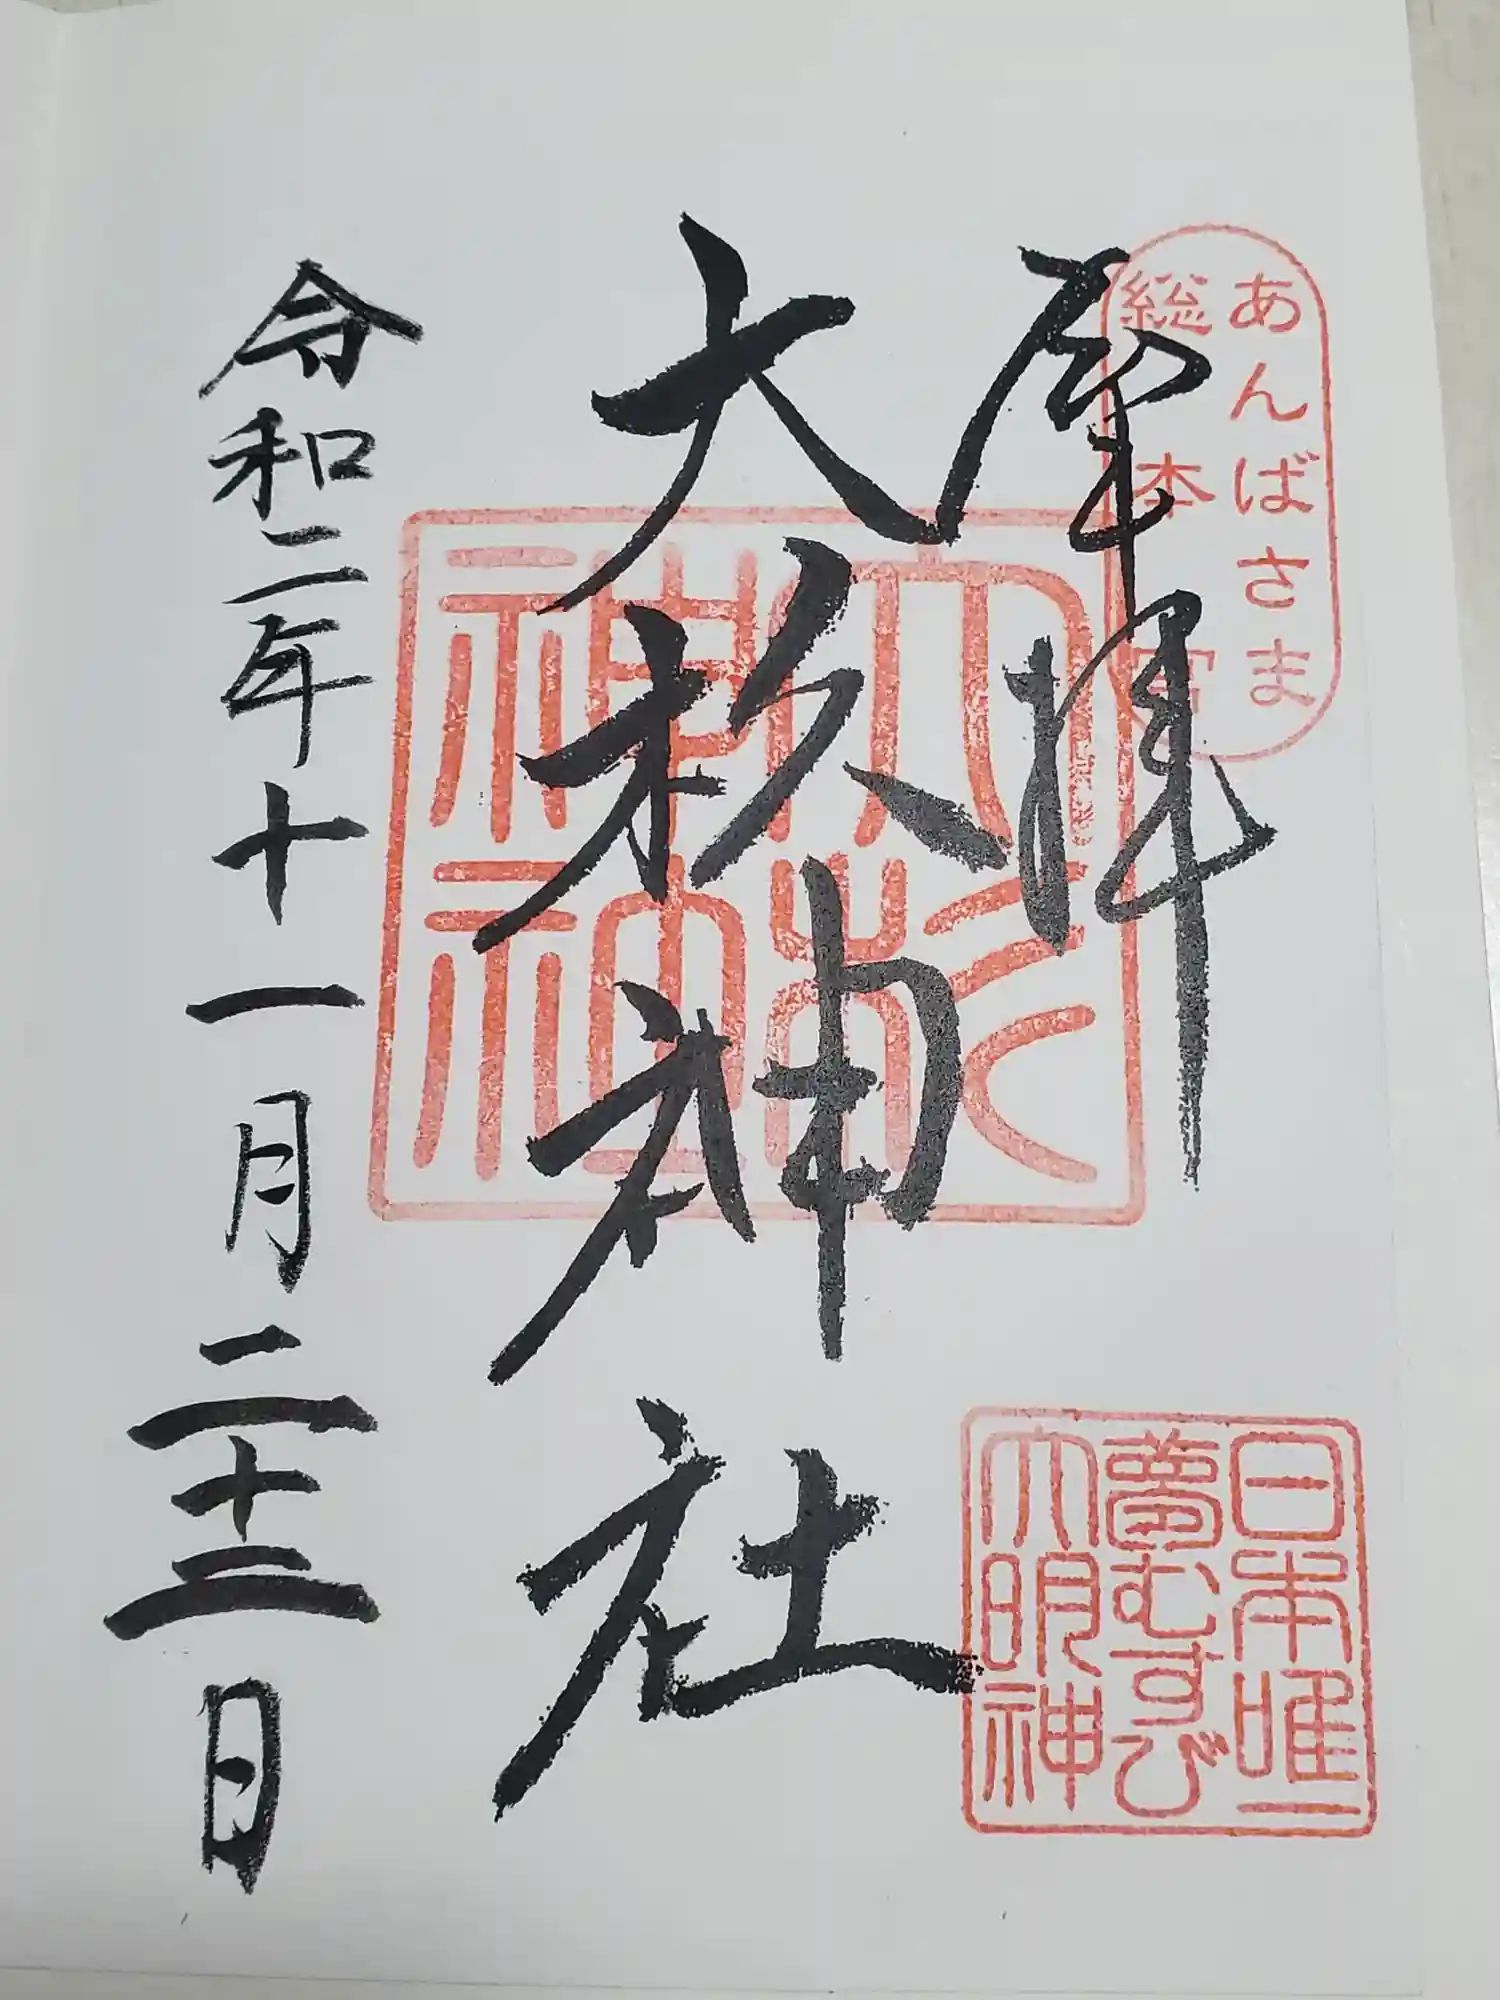 あんばさま
総本宮
奉拝
大杉神社
大杉神社
日本唯一
夢むすび
大明神
令和二年十一月二十三日